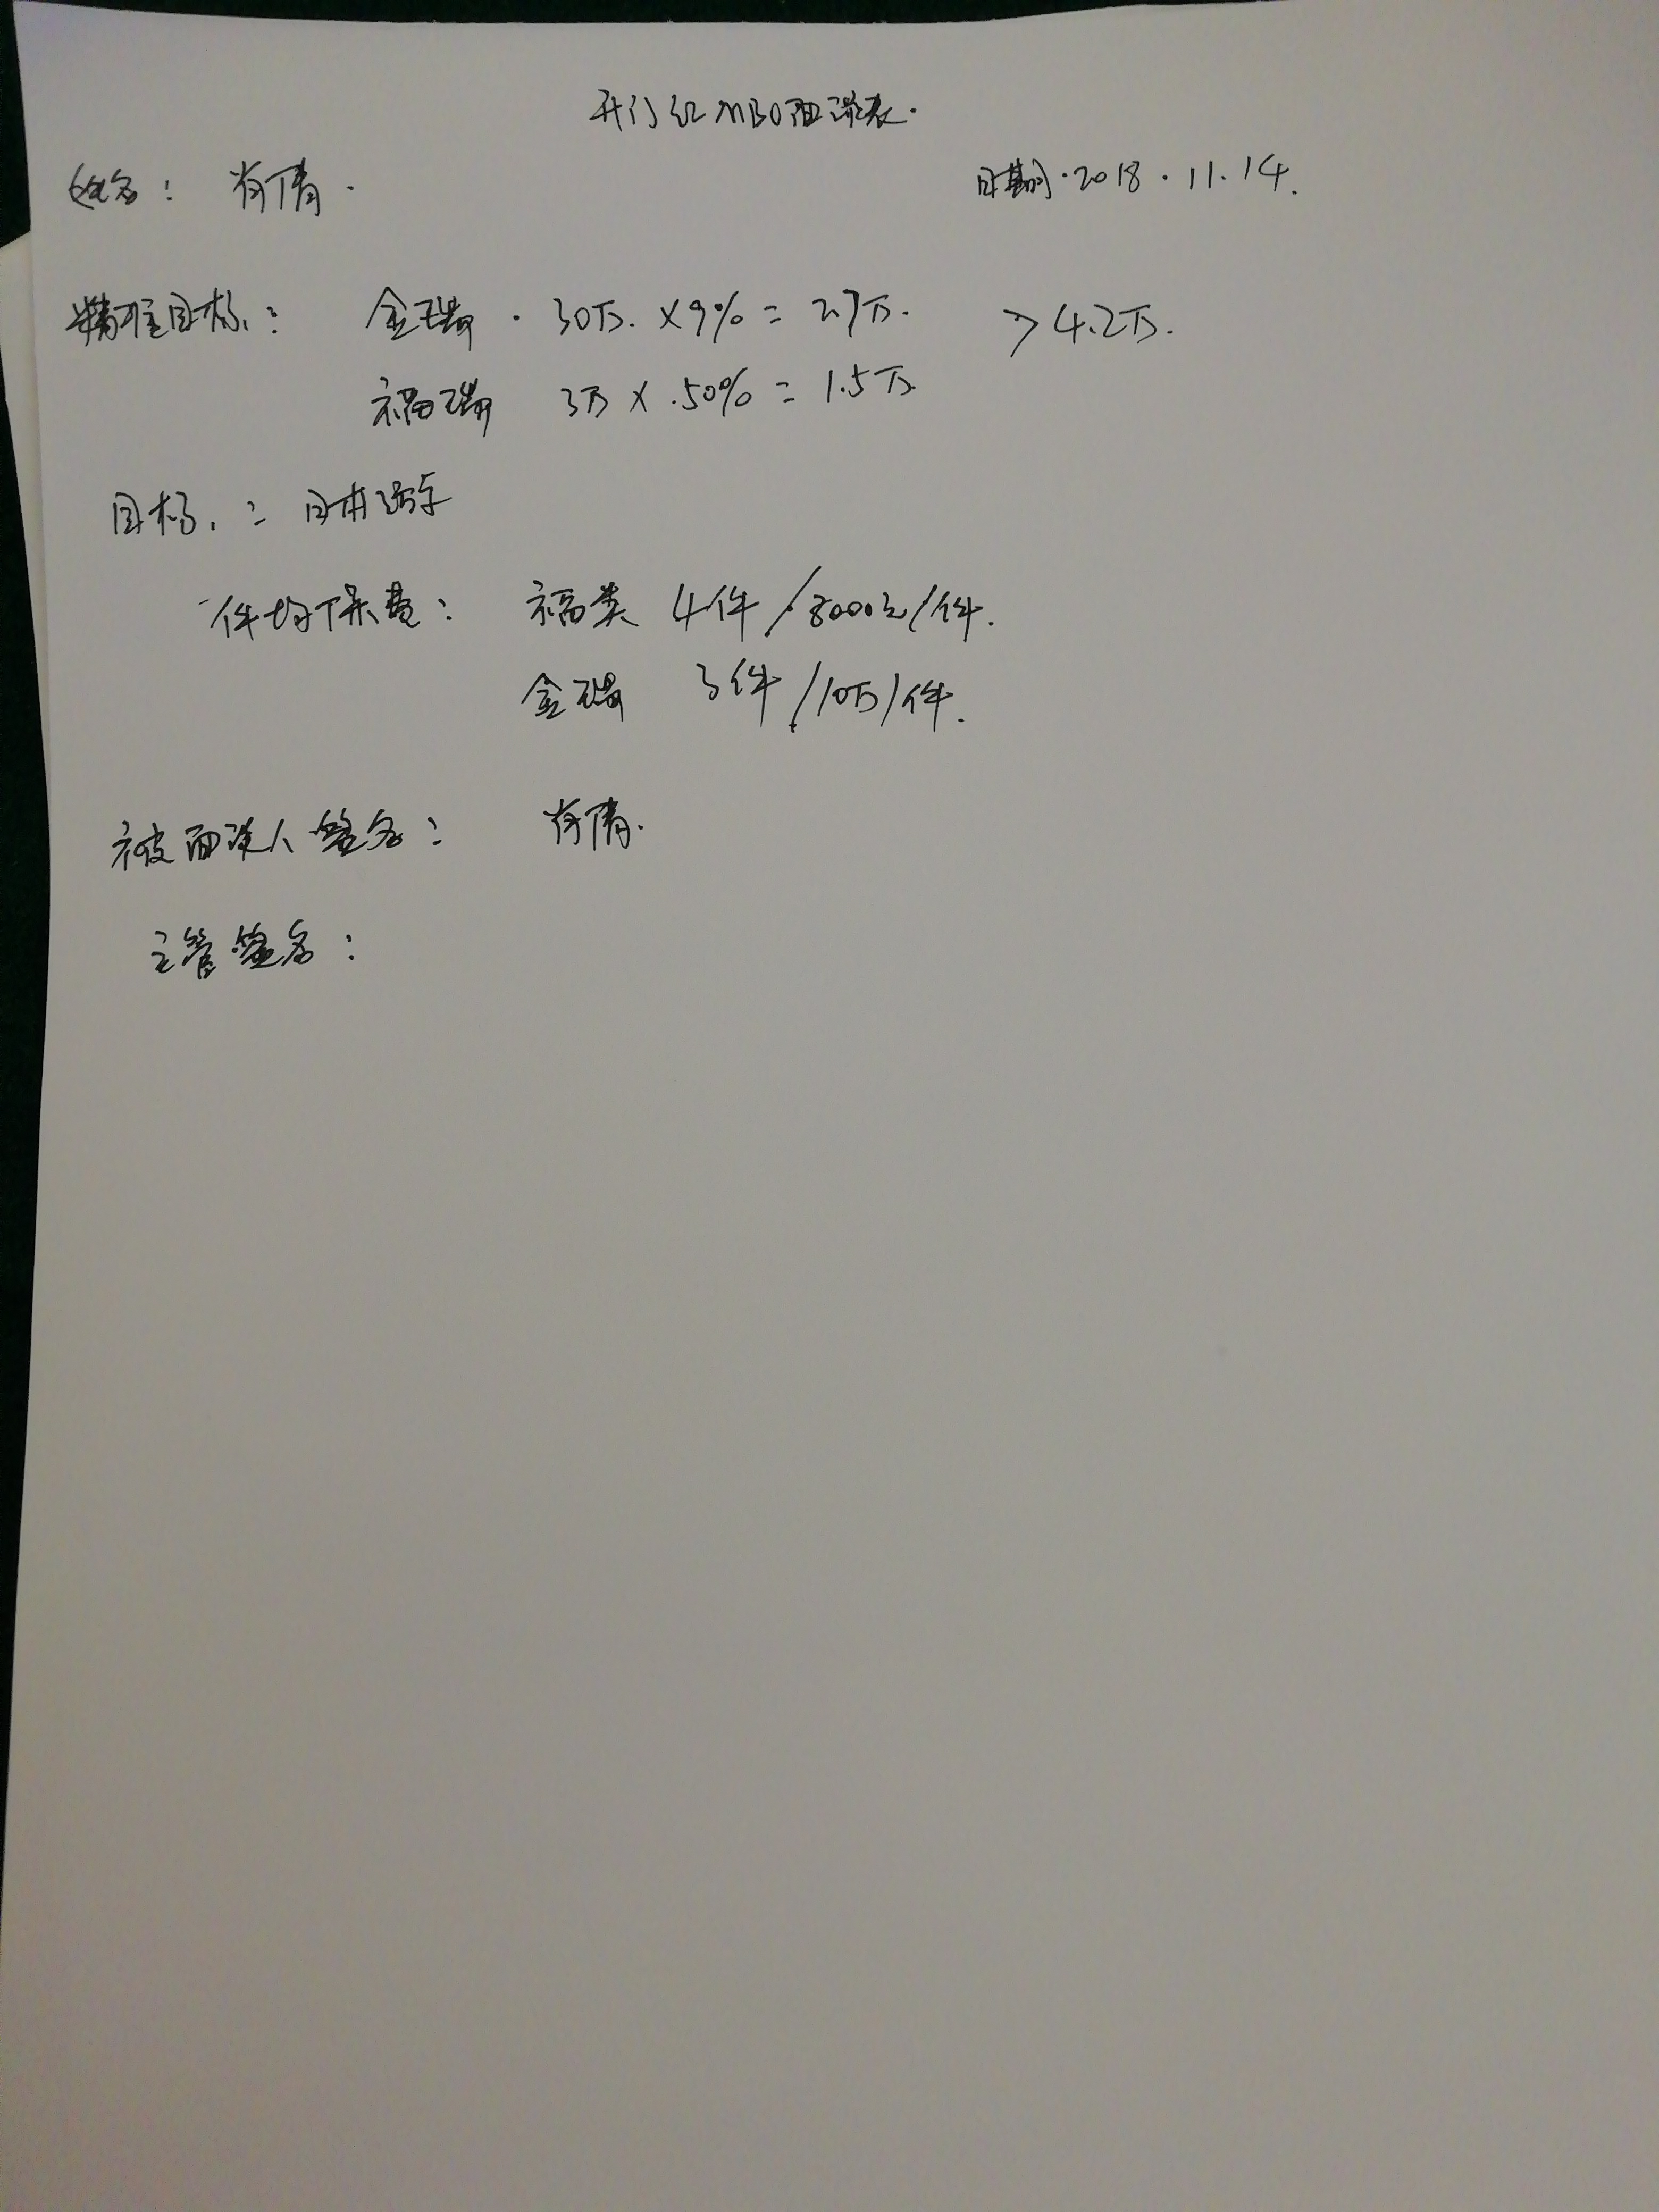 开门红MBO面谈表.
姓名: 肖倩. 日期.2018.11.14.
精准目标: 金瑞. 30万.×9%=2.7万. >4.2万.
福瑞 3万×.50%=1.5万
目标: 日本游学
件均保费: 福类 4件/8000元/件.
金瑞 3件/10万/件.
被面谈人签名: 肖倩.
主管签名: